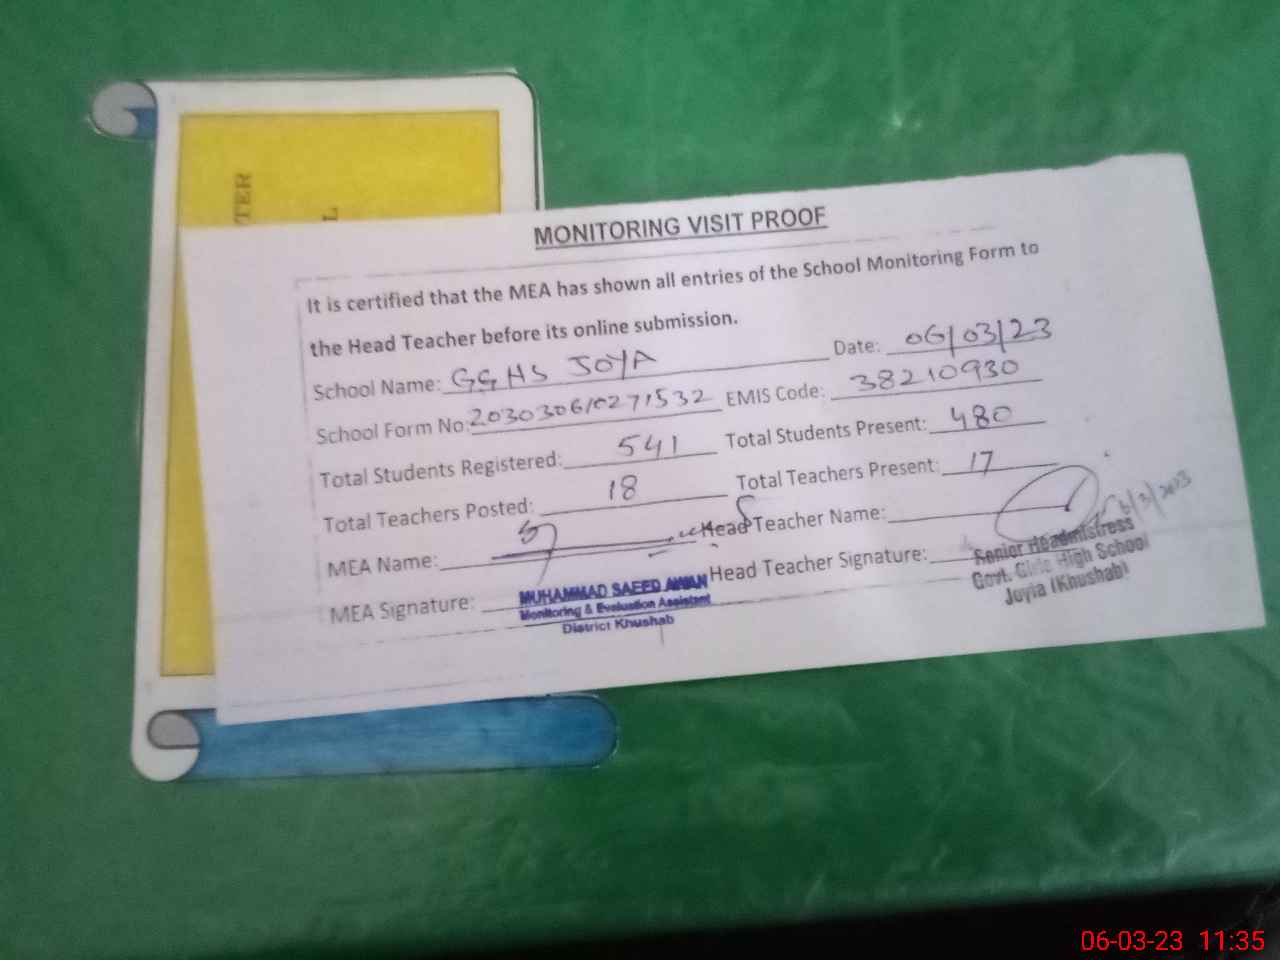 TER
L
MONITORING VISIT PROOF
It is certified that the MEA has shown all entries of the School Monitoring Form to
the Head Teacher before its online submission.
School Name: GGHS JOYA Date: 06/03/23
School Form No: 203030610271532 EMIS Code: 38210930
Total Students Registered: 541 Total Students Present: 480
Total Teachers Posted: 18 Total Teachers Present: 17
MEA Name: Head Teacher Name:
6/3/2023
MEA Signature: Head Teacher Signature:
MUHAMMAD SAEED AWAN
Monitoring & Evaluation Assistant
District Khushab
Senior Headmistress
Govt. Girls High School
Joyia (Khushab)
06-03-23 11:35